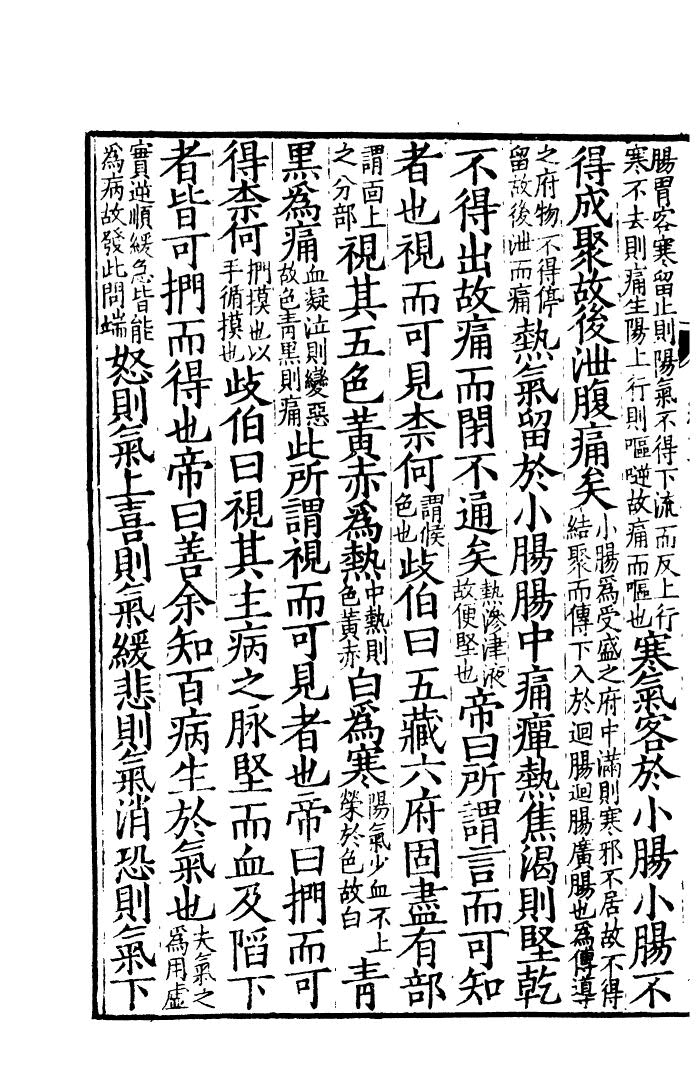 腸胃客寒留止則陽氣不得下流而反上行寒不去則痛生陽上行則嘔逆故痛而嘔也寒氣客於小腸小腸不
得成聚故後泄腹痛矣小腸爲受盛之府中滿則寒邪不居故不得結聚而傳下入於迴腸迴腸廣腸也爲傳導
之府物不得停留故後泄而痛熱氣留於小腸腸中痛癉熱焦渴則堅乾
不得出故痛而閉不通矣熱滲津液故便堅也帝曰所謂言而可知
者也視而可見柰何謂候色也歧伯曰五藏六府固盡有部
謂面上之分部視其五色黃赤爲熱中熱則色黃赤白爲寒陽氣少血不上榮於色故白青
黑爲痛血凝泣則變惡故色青黑則痛此所謂視而可見者也帝曰捫而可
得柰何捫摸也以手循摸也歧伯曰視其主病之脉堅而血及陷下
者皆可捫而得也帝曰善余知百病生於氣也夫氣之爲用虛
實逆順緩急皆能爲病故發此問端怒則氣上喜則氣緩悲則氣消恐則氣下